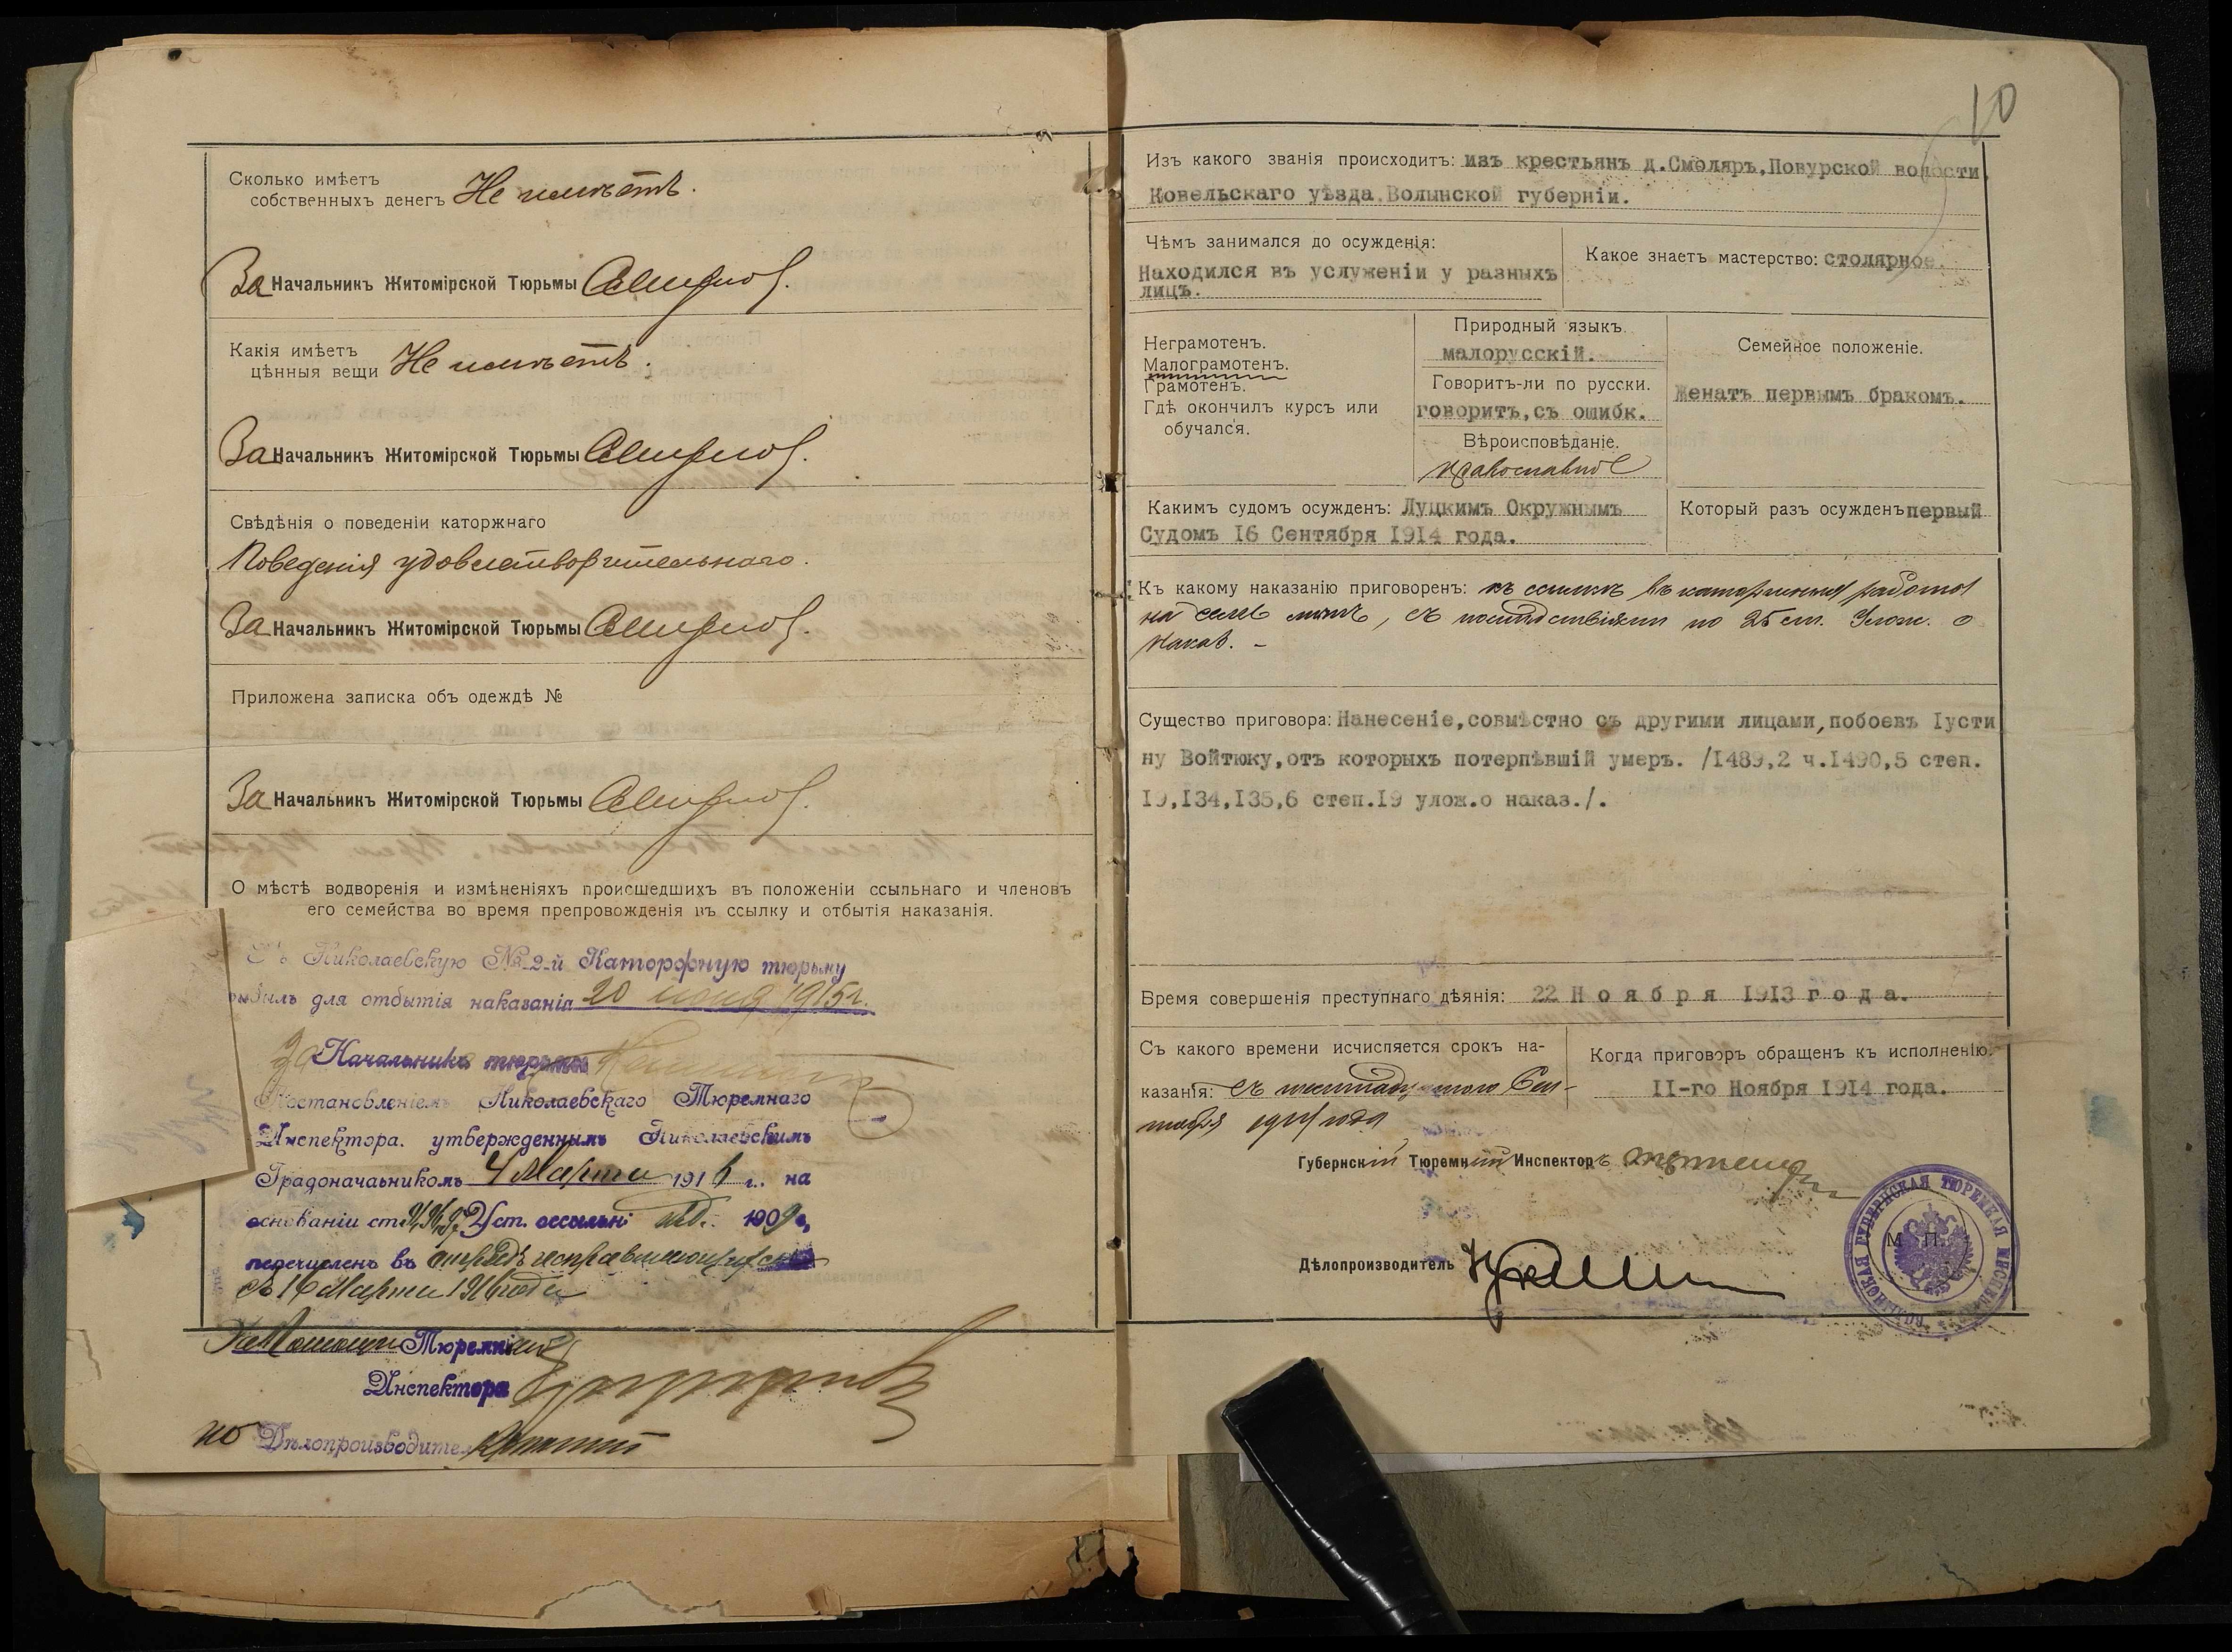 Сколько имѣетъ
собственныхъ денегъ Не имѣетъ.
За Начальникъ Житомірской Тюрьмы
Какія имѣетъ
цѣнныя вещи Не имѣетъ.
За Начальникъ Житомірской Тюрьмы
Свѣдѣнія о поведеніи каторжнаго
Поведенія удовлетворительнаго.
За Начальникъ Житомірской Тюрьмы
Приложена записка объ одеждѣ №
За Начальникъ Житомірской Тюрьмы
О мѣстѣ водворенія и измѣненіяхъ происшедшихъ въ положеніи ссыльнаго и членовъ
его семейства во время препровожденія въ ссылку и отбытія наказанія.
Николаевскую № 2-й Каторжную тюрьму
для отбытія наказанія 20 1915 г.
За Начальника тюрьмы
Постановленіемъ Николаевскаго Тюремнаго
Инспектора. утвержденнымъ Николаевскимъ
Градоначальникомъ 4 Марта 1916 г.. на
основаніи ст. Уст. ссыльн. изд. 1909 г,
перечисленъ въ отрядъ исправляющихся
съ 16 Марта 1916 года
Тюремн
Инспектора
по Дѣлопроизводител
10
Изъ какого званія происходитъ: изъ крестьянъ д.Смоляръ,Повурской волости,
Ковельскаго уѣзда Волынской губерніи.
Чѣмъ занимался до осужденія:
Находился въ услуженіи у разныхъ
лицъ.
Какое знаетъ мастерство: столярное.
Неграмотенъ.
Малограмотенъ.
Грамотенъ.
Гдѣ окончилъ курсъ или
обучался.
Природный языкъ.
малорусскій.
Говоритъ-ли по русски.
говоритъ,съ ошибк.
Вѣроисповѣданіе.
православное
Семейное положеніе.
Женатъ первымъ бракомъ.
Какимъ судомъ осужденъ: Луцкимъ Окружнымъ
Судомъ 16 Сентября 1914 года.
Который разъ осужденъ первый
Къ какому наказанію приговоренъ: къ ссылкѣ въ каторжныя работы
на семь лѣтъ, съ послѣдствіями по 25 ст. Улож. о
Наказ. -
Существо приговора: Нанесеніе,совмѣстно съ другими лицами,побоевъ Іусти
ну Войтюку,отъ которыхъ потерпѣвшій умеръ. /1489,2 ч.1490,5 степ.
19,134,135,6 степ.19 улож.о наказ./.
Время совершенія преступнаго дѣянія: 22 Ноября 1913 года.
Съ какого времени исчисляется срокъ на-
казанія: съ шестнадцатого Сен-
тября 1914 года
Когда приговоръ обращенъ къ исполненію:
11-го Ноября 1914 года.
Губернскій Тюремный Инспекторъ
Дѣлопроизводитель
М. П.
ВОЛЫНСКАЯ ГУБЕРНСКАЯ ТЮРЕМНАЯ ИНСПЕКЦІЯ